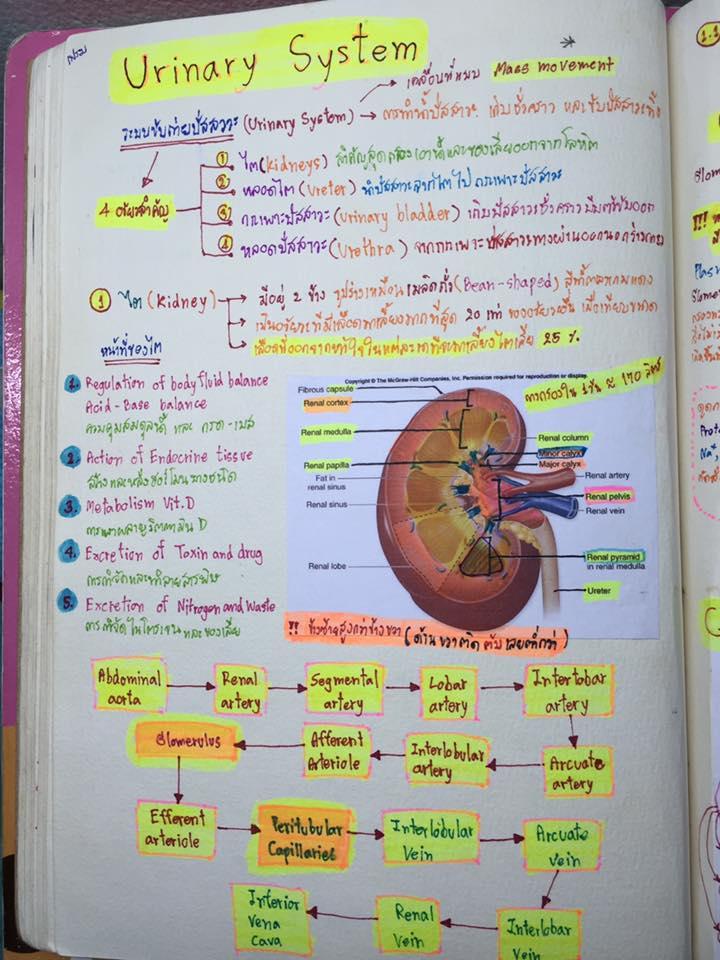 Urinary System
*
เคลื่อนที่แบบ Mass movement
ระบบขับถ่ายปัสสาวะ (Urinary System) → การทำน้ำปัสสาวะ เก็บชั่วคราว และขับปัสสาวะทิ้ง
4 อวัยวะสำคัญ
① ไต (kidneys) สำคัญสุด กรองเอาน้ำและของเสียออกจากโลหิต
② หลอดไต (Ureter) นำปัสสาวะจากไตไปกระเพาะปัสสาวะ
③ กระเพาะปัสสาวะ (urinary bladder) เก็บปัสสาวะชั่วคราว บีบตัวขับออก
④ หลอดปัสสาวะ (Urethra) จากกระเพาะปัสสาวะทางผ่านออกนอกร่างกาย
① ไต (Kidney) → มีอยู่ 2 ข้าง รูปร่างเหมือนเมล็ดถั่ว (Bean-shaped) สีน้ำตาลแกมแดง
→ เป็นอวัยวะที่มีเลือดมาเลี้ยงมากที่สุด 20 เท่า ของอวัยวะอื่น เมื่อเทียบขนาด
→ เลือดที่ออกจากหัวใจในแต่ละนาทีจะมาเลี้ยงไตเสีย 25 %
หน้าที่ของไต
1. Regulation of body fluid balance
Acid-Base balance
ควบคุมสมดุลน้ำ และ กรด-เบส
2. Action of Endocrine tissue
สร้างและหลั่งฮอร์โมนบางชนิด
3. Metabolism Vit.D
การเผาผลาญวิตามิน D
4. Excretion of Toxin and drug
การกำจัดและทำลายสารพิษ
5. Excretion of Nitrogen and Waste
การกำจัดไนโตรเจน และของเสีย
Copyright © The McGraw-Hill Companies, Inc. Permission required for reproduction or display.
การกรองใน 1 วัน ≈ 170 ลิตร
Fibrous capsule
Renal cortex
Renal medulla
Renal papilla
Fat in
renal sinus
Renal sinus
Renal lobe
Renal column
Minor calyx
Major calyx
Renal artery
Renal pelvis
Renal vein
Renal pyramid
in renal medulla
Ureter
!! ข้างซ้ายสูงกว่าข้างขวา (ด้านขวาติดตับเลยต่ำกว่า)
Abdominal aorta → Renal artery → Segmental artery → Lobar artery → Interlobar artery
Glomerulus ← Afferent Arteriole ← Interlobular artery ← Arcuate artery
Efferent arteriole → Peritubular Capillaries → Interlobular Vein → Arcuate vein
Inferior Vena Cava ← Renal Vein ← Interlobar Vein